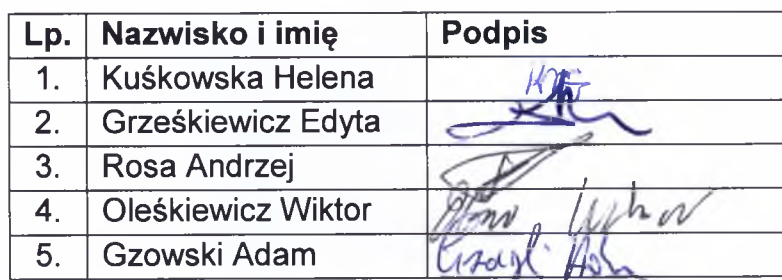 Lp. Nazwisko i imię Podpis
1. Kuśkowska Helena
2. Grześkiewicz Edyta
3. Rosa Andrzej
4. Oleśkiewicz Wiktor
5. Gzowski Adam